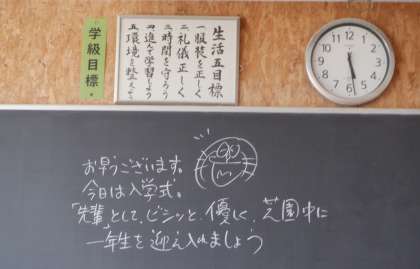 学級目標。
生活五目標
一服装を正しく
二礼儀正しく
三時間を守ろう
四進んで学習しよう
五環境を整えよう
お早うございます。
今日は入学式。
「先輩」として、ビシッと、優しく、芝園中に
一年生を迎え入れましょう